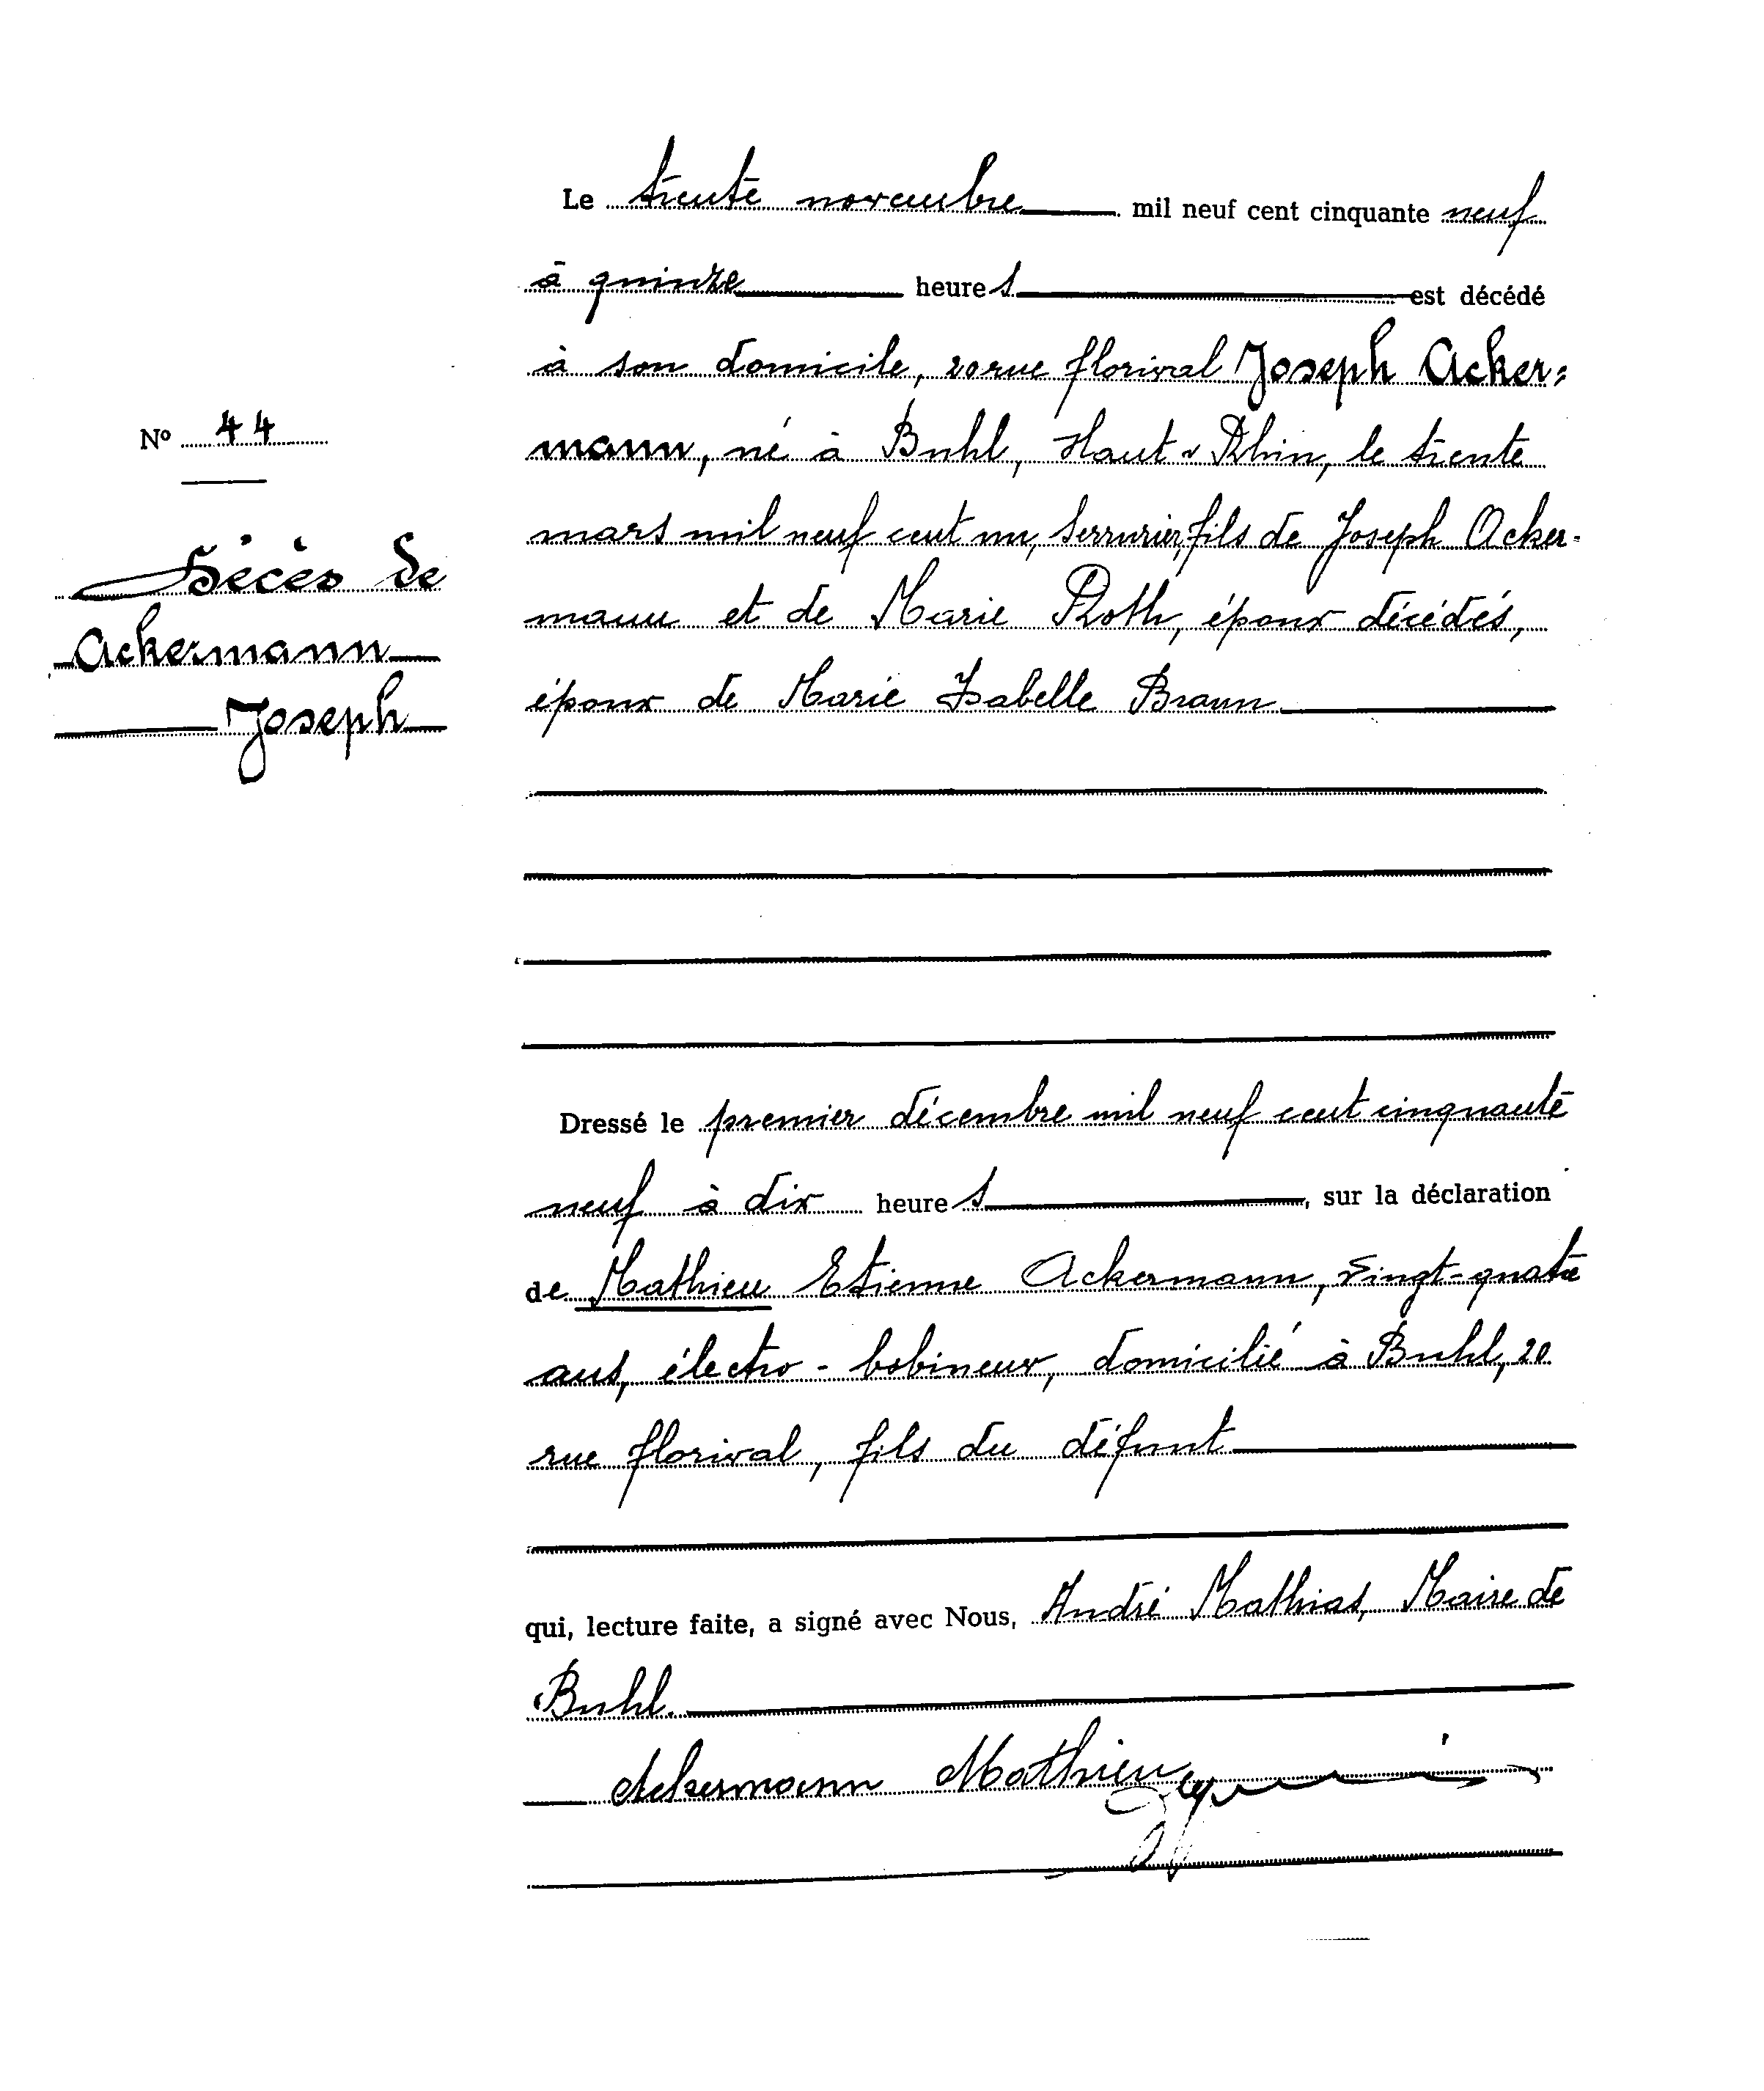 Le trente novembre mil neuf cent cinquante neuf
à quinze heures est décédé
à son domicile, 20 rue florival Joseph Acker=
mann, né à Buhl, Haut-Rhin, le trente
mars mil neuf cent un, serrurier, fils de Joseph Acker-
mann et de Marie Roth, époux décédés,
époux de Marie Isabelle Braun
Nº 44
Décès de
Ackermann
Joseph
Dressé le premier décembre mil neuf cent cinquante
neuf à dix heures, sur la déclaration
de Mathieu Etienne Ackermann, vingt-quatre
ans, électro-bobineur, domicilié à Buhl, 20
rue florival, fils du défunt
qui, lecture faite, a signé avec Nous, André Mathias, Maire de
Buhl.
Ackermann Mathieu